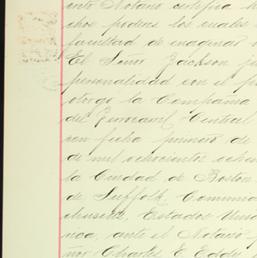 ente Notario certifica h
chos poderes los cuales
facultad de enagenar
El Señor Jackson ju
personalidad con el p
otorga la Compañia
del Ferrocarril Central
con fecha primero de
de mil ochocientos ochen
la Ciudad de Boston
de Suffolk, Commun
chusetts, Estados Unid
ica, ante el Notario
ñor Charles E. Eddy